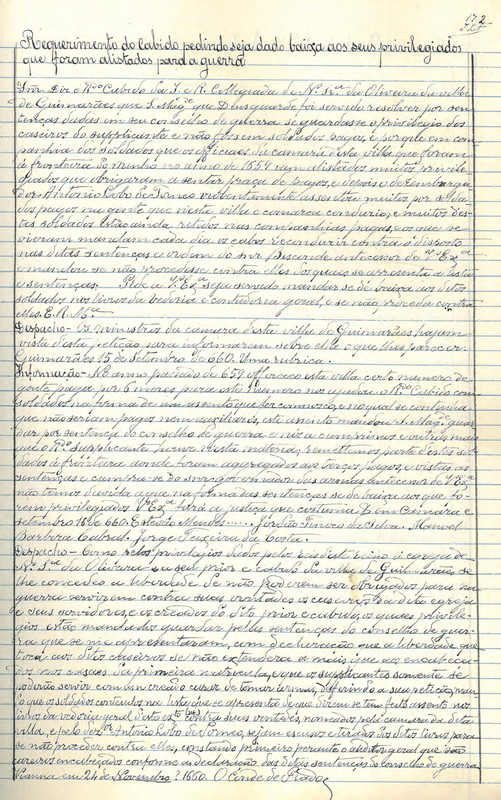 172
Requerimento do Cabido pedindo seja dado baixa aos seus privilegiados
que foram alistados para a guerra
Snr. Diz o Rdo Cabido da I. e R. Collegiada de Na. Sra. da Oliveira da villa
de Guimarães que S. Magde que Deus guarde foi servido resolver por sen-
tenças dadas em seu conselho de guerra se guardasse o privilegio dos
caseiros do supplicante e não fossem soldados pagos, e porque em com-
panhia dos soldados que os officiaes da camara desta villa que foram
á fronteira do Minho no anno de 1659 eram alistados muitos privile-
giados que obrigaram a sentar praça de pagos, e depois o desembarga-
dor Antonio Lobo de Torneo violentamente assentou muitos por solda-
dos pagos na gente que nesta villa e comarca conduzio, e muitos des-
tes soldados estão ainda retidos nas companhias pagas, e os que se
vieram mandam cada dia os cabos reconduzir contra o disposto
nas ditas sentenças e ordem do snr Visconde antecessor de V. Exa
e mandou se não procedesse contra elles dos quaes se apresenta a lista
e sentenças. Pede a V. Exa seja servido mandar se dê baixa aos ditos
soldados nos livros da vedoria e contadoria geral, e se não proceda contra
elles. E. R. Mce.
Despacho - Os ministros da camara desta villa de Guimarães hajam
vista desta petição para informarem sobre ella o que lhes parecer.
Guimarães 15 de Setembro de 660. Uma rubrica.
Informação - No anno passado de 659 offereceo esta villa certo numero de
gente paga por 6 meses para este numero nos ajudou o Rdo Cabido com
soldados na forma de um assento que fez comnosco, e no qual se continha
que não seriam pagos nem auxiliares, este assento mandou S. Magde guar-
dar por sentença do conselho de guerra e nós a cumprimos e outras mais
que o Rdo Supplicante houve nesta materia, remettemos parte destes sol-
dados á fronteira donde foram aggregados aos terços pagos, e vistas as
sentenças e cumpra-se do sargento maior das armas antecessor de V. Exa
não temos duvida a que na forma das sentenças se dê baixa aos que fo-
rem privilegiados V. Exa fará a justiça que costuma. Em Camara e
setembro 18 de 660. Estevão Mendes..... Jordão Tavares da Silva. Manoel
Barbosa Cabral. Jorge Teixeira da Costa.
Despacho - Como pelos privilegios dados pelos reis deste reino á egreja de
Na. Sra. da Oliveira e a seu prior e cabido da villa de Guimarães, se
lhe concedeo a liberdade de não poderem ser obrigados para na
guerra servirem contra suas vontades os caseiros da dita egreja
e seus servidores, e os creados do dito prior e cabido, os quaes privile-
gios estão mandados guardar pelas sentenças do conselho de guer-
ra que se me apresentaram, com declaração que a liberdade que
toca aos ditos caseiros se não extenderá a mais que aos encabeça-
dos nos casaes da primeira matricula, e que os supplicantes somente se
poderão servir com um creado capaz de tomar armas, deferindo a sua petição, man-
do que os soldados contendos na lista que se apresenta de que dizem se tem feito assento nos
livros da védoria geral deste exto contra suas vontades, nomeados pela camara da dita
villa, e pelo dor Antonio Lobo de Torneo, sejam escusos e tirados dos ditos livros para
se não proceder contra elles, constando primeiro perante o auditor geral que são
caseiros encabeçados conforme as declaração das ditas sentenças do conselho de guerra
Vianna em 24 de Novembro? 1660. O Conde de Prado